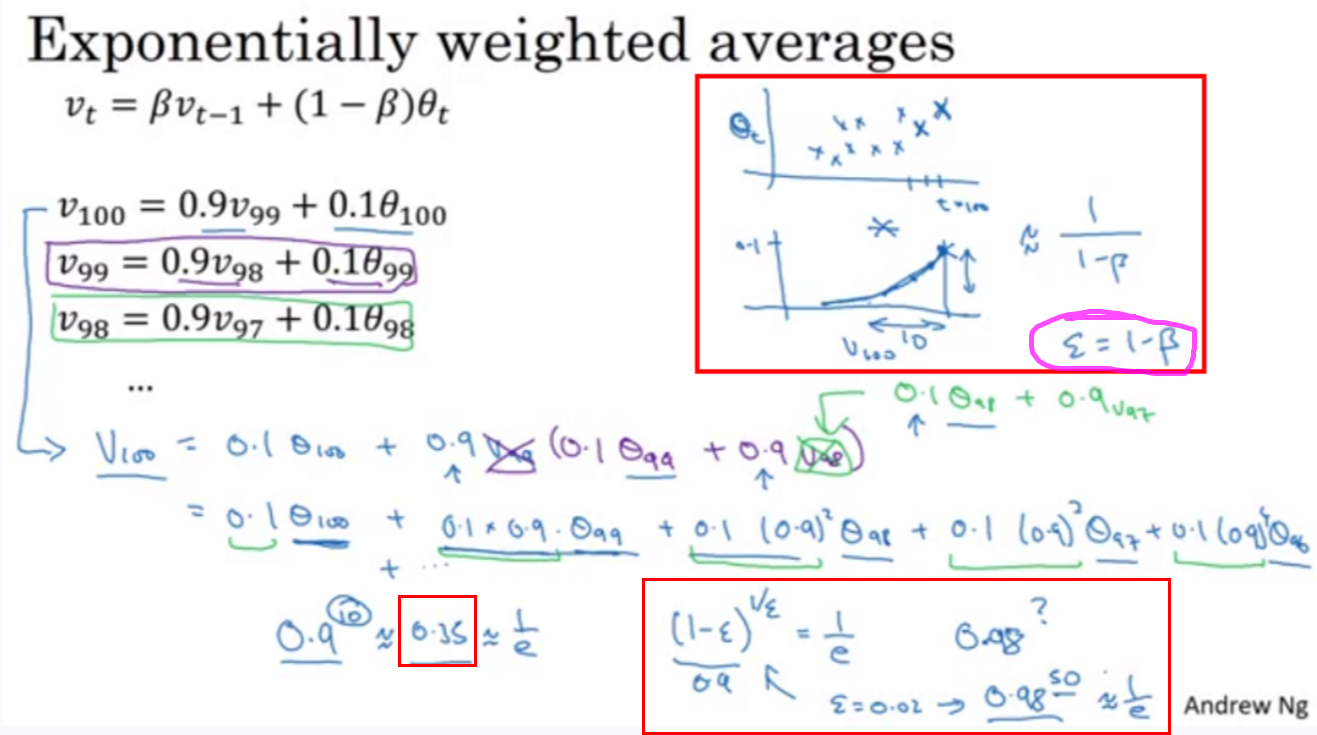 Exponentially weighted averages
v_t = βv_{t−1} + (1 − β)θ_t
v_100 = 0.9v_99 + 0.1θ_100
v_99 = 0.9v_98 + 0.1θ_99
v_98 = 0.9v_97 + 0.1θ_98
...
θ_t
t=100
0.1
V_100
10
≈ 1/(1-β)
ε = 1-β
0.1 θ_98 + 0.9 v_97
V_100 = 0.1 θ_100 + 0.9 v_99 (0.1 θ_99 + 0.9 v_98)
= 0.1 θ_100 + 0.1 × 0.9 · θ_99 + 0.1 (0.9)² θ_98 + 0.1 (0.9)³ θ_97 + 0.1 (0.9)⁴ θ_96
+ ...
0.9^10 ≈ 0.35 ≈ 1/e
(1-ε)^{1/ε} = 1/e
0.9
0.98^?
ε = 0.02 → 0.98^50 ≈ 1/e
Andrew Ng